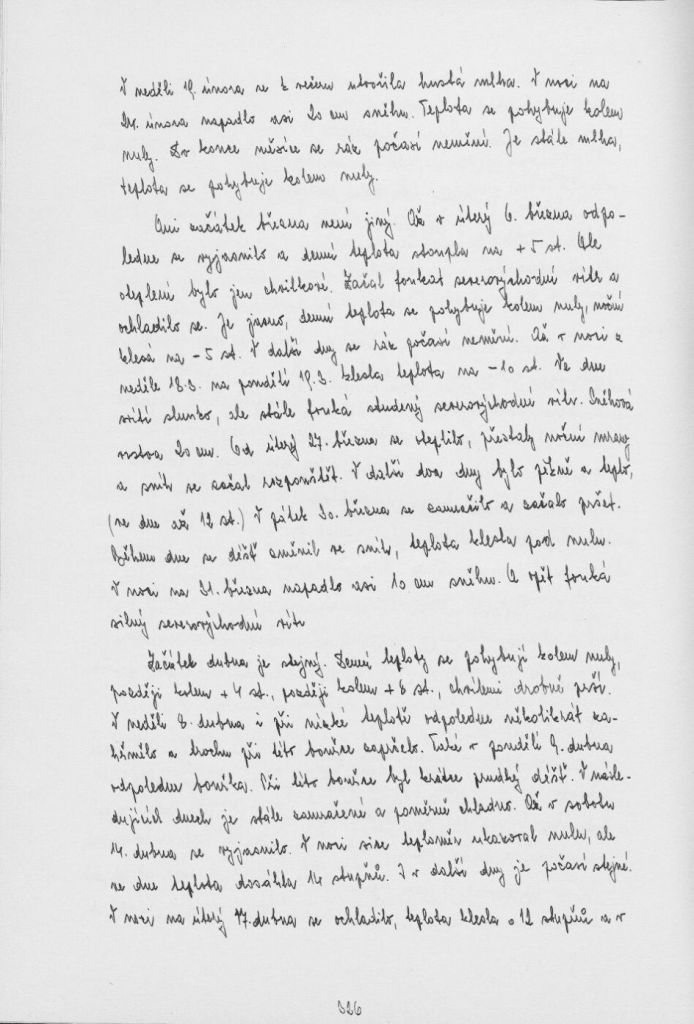 V neděli 19. února se k večeru utvořila hustá mlha. V noci na
20. února napadlo asi 20 cm sněhu. Teplota se pohybuje kolem
nuly. Do konce měsíce se ráz počasí nemění. Je stále mlha,
teplota se pohybuje kolem nuly.
Ani začátek března není jiný. Až v úterý 6. března odpo-
ledne se vyjasnilo a denní teplota stoupla na +5 st. Ale
oteplení bylo jen chvilkové. Začal foukat severovýchodní vítr a
ochladilo se. Je jasno, denní teplota se pohybuje kolem nuly, noční
klesá na -5 st. V další dny se ráz počasí nemění. Až v noci z
neděle 18.3. na pondělí 19.3. klesla teplota na -10 st. Ve dne
svítí slunko, ale stále fouká studený severovýchodní vítr. Sněhová
vrstva 20 cm. Od úterý 27. března se oteplilo, přestaly noční mrazy
a sníh se začal rozpouštět. V další dva dny bylo pěkně a teplo,
(ve dne až 12 st.) V pátek 30. března se zamračilo a začalo pršet.
Během dne se déšť změnil ve sníh, teplota klesla pod nulu.
V noci na 31. března napadlo asi 10 cm sněhu. A opět fouká
silný severovýchodní vítr
Začátek dubna je stejný. Denní teploty se pohybují kolem nuly,
později kolem +4 st., později kolem +8 st., chvílemi drobně prší.
V neděli 8. dubna i při nízké teplotě odpoledne několikrát za-
hřmělo a trochu při této bouřce zapršelo. Také v pondělí 9. dubna
odpoledne bouřka. Při této bouřce byl krátce prudký déšť. V násle-
dujících dnech je stále zamračené a poměrně chladno. Až v sobotu
14. dubna se vyjasnilo. V noci sice teploměr ukazoval nulu, ale
ve dne teplota dosáhla 14 stupňů. I v další dny je počasí stejné.
V noci na úterý 17. dubna se ochladilo, teplota klesla o 12 stupňů a v
326